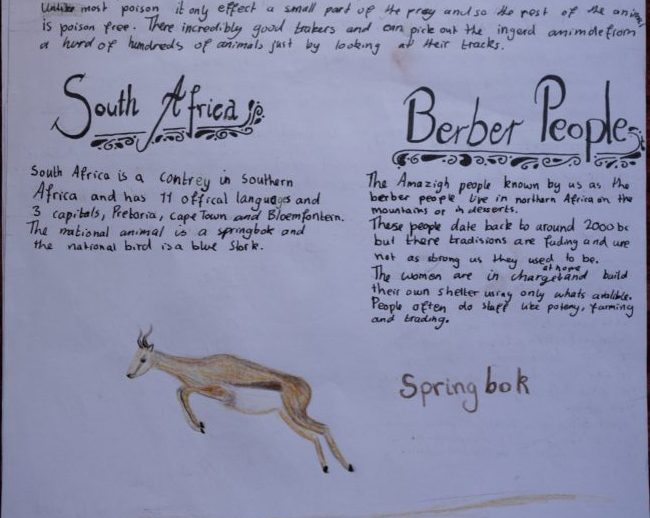 Unlike most poison it only effect a small part of the prey and so the rest of the animal
is poison free. There incredibly good trakers and can pick out the ingerd animale from
a hurd of hundreds of animals just by looking at their tracks.
South Africa
South Africa is a contrey in southern
Africa and has 11 offical languages and
3 capitals, Pretoria, cape Town and Bloemfontern.
The national animal is a springbok and
the national bird is a blue Stork.
Berber People
The Amazigh people known by us as the
berber people live in northern Africa on the
mountains or in desserts.
These people date back to around 2000 bc
but there tradisions are fading and are
not as strong us they used to be.
The women are in charge at home and build
their own shelter using only whats avalible.
People often do staff like potony, farming
and trading.
Springbok